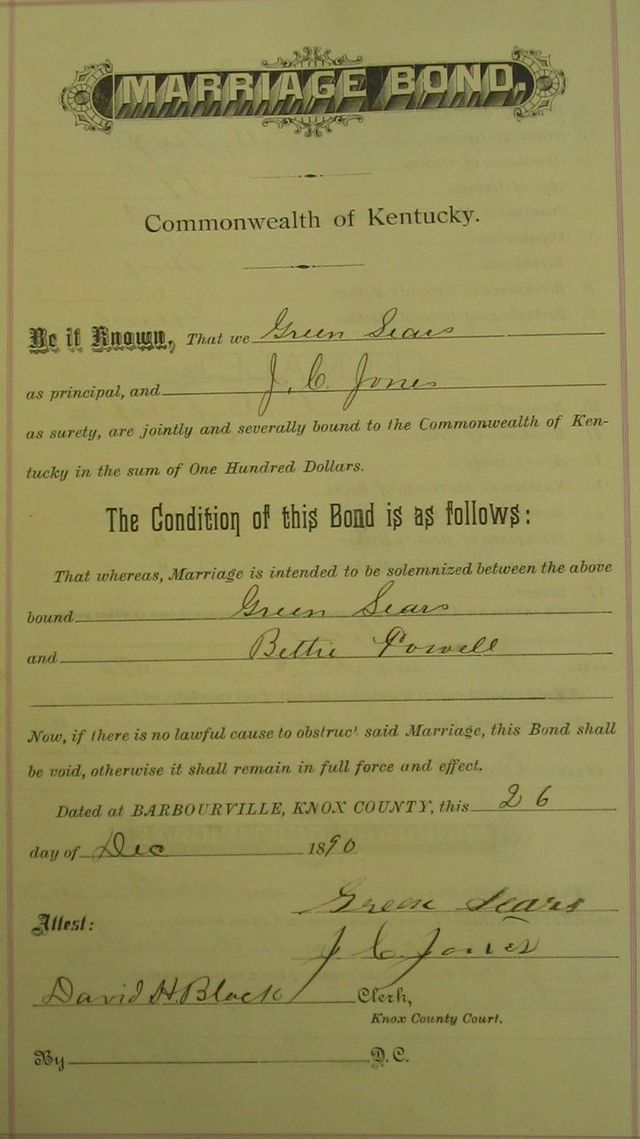 MARRIAGE BOND,
Commonwealth of Kentucky.
Be it Known, That we Green Sears
as principal, and J. C. Jones
as surety, are jointly and severally bound to the Commonwealth of Ken-
tucky in the sum of One Hundred Dollars.
The Condition of this Bond is as follows:
That whereas, Marriage is intended to be solemnized between the above
bound Green Sears
and Bettie Powell
Now, if there is no lawful cause to obstruc' said Marriage, this Bond shall
be void, otherwise it shall remain in full force and effect.
Dated at BARBOURVILLE, KNOX COUNTY, this 26
day of Dec 1890
Green Sears
Attest:
J C Jones
David H. Black Clerk,
Knox County Court.
By D. C.